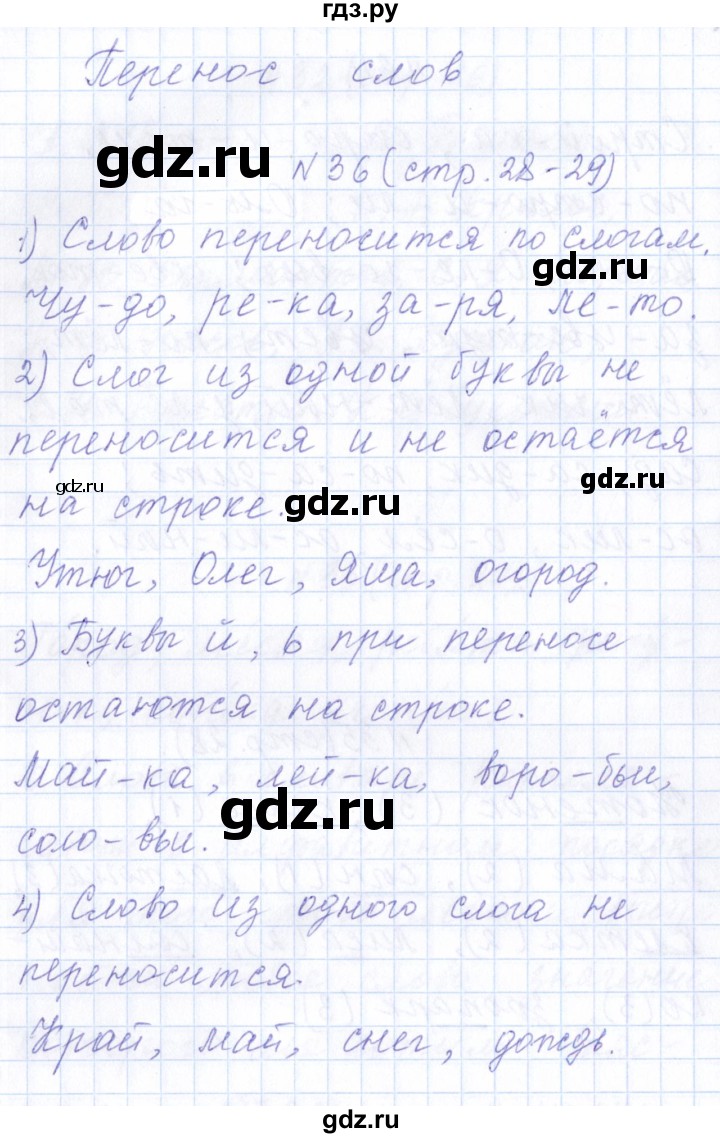 гдз.ру
Перенос слов
gdz.ru
N 36 (стр. 28-29)
1) Слово переносится по слогам.
gdz.ru
Чу-до, ре-ка, за-ря, ле-то.
2) Слог из одной буквы не
переносится и не остаётся
gdz.ru
gdz.ru
на строке.
gdz.ru
Утюг, Олег, Яша, огород.
3) Буквы й, ь при переносе
остаются на строке.
Май-ка, лей-ка, воро-бьи,
gdz.ru
соло-вьи.
4) Слово из одного слога не
переносится.
Край, май, снег, дождь.
gdz.ru